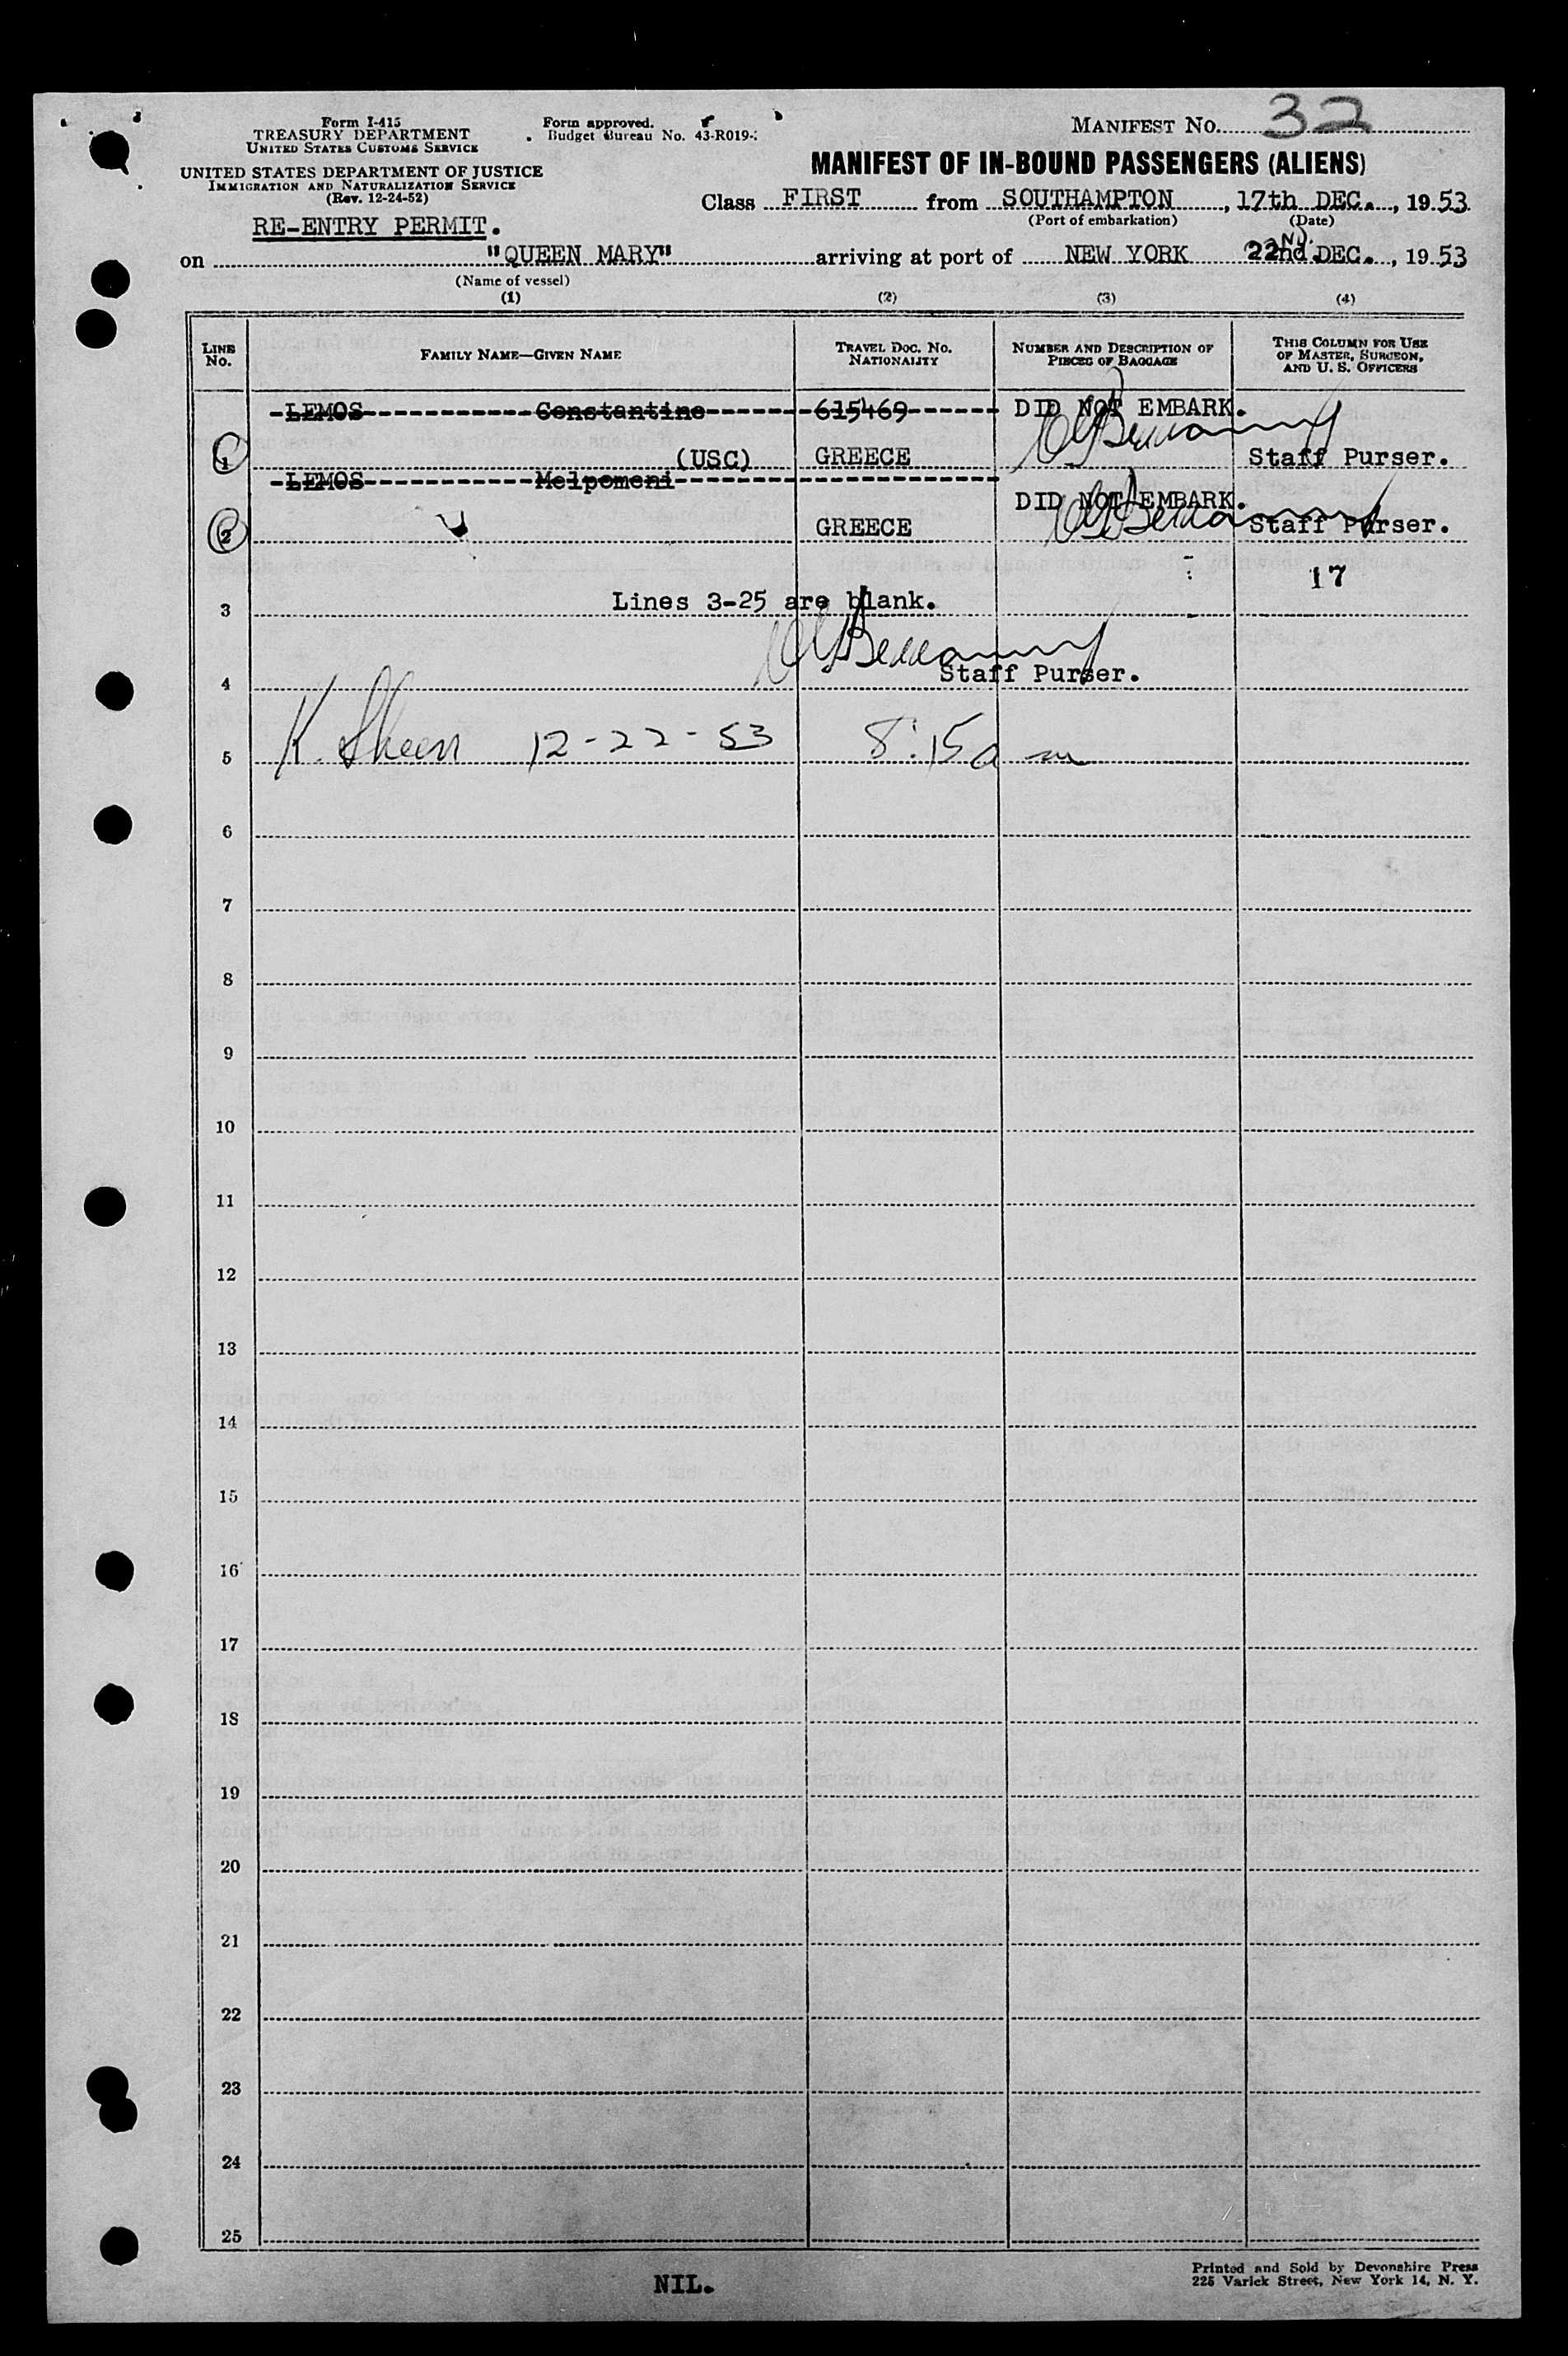 Form I-415
TREASURY DEPARTMENT
UNITED STATES CUSTOMS SERVICE
UNITED STATES DEPARTMENT OF JUSTICE
IMMIGRATION AND NATURALIZATION SERVICE
(Rev. 12-24-52)
RE-ENTRY PERMIT.
Form approved.
Budget Bureau No. 43-R019-
MANIFEST No. 32
MANIFEST OF IN-BOUND PASSENGERS (ALIENS)
Class FIRST from SOUTHAMPTON, 17th DEC., 1953
(Port of embarkation) (Date)
on "QUEEN MARY" arriving at port of NEW YORK 22nd DEC., 1953
(Name of vessel)
(1) (2) (3) (4)
LINE No. FAMILY NAME—GIVEN NAME TRAVEL DOC. No. NATIONALITY NUMBER AND DESCRIPTION OF PIECES OF BAGGAGE THIS COLUMN FOR USE OF MASTER, SURGEON, AND U. S. OFFICERS
LEMOS Constantine 615469 DID NOT EMBARK.
1 (USC) GREECE Staff Purser.
LEMOS Melpomeni
DID NOT EMBARK.
2 GREECE Staff Purser.
17
3 Lines 3-25 are blank.
4 Staff Purser.
5 K. Skeen 12-22-53 8:15 a m
6
7
8
9
10
11
12
13
14
15
16
17
18
19
20
21
22
23
24
25
NIL.
Printed and Sold by Devonshire Press
225 Varick Street, New York 14, N. Y.